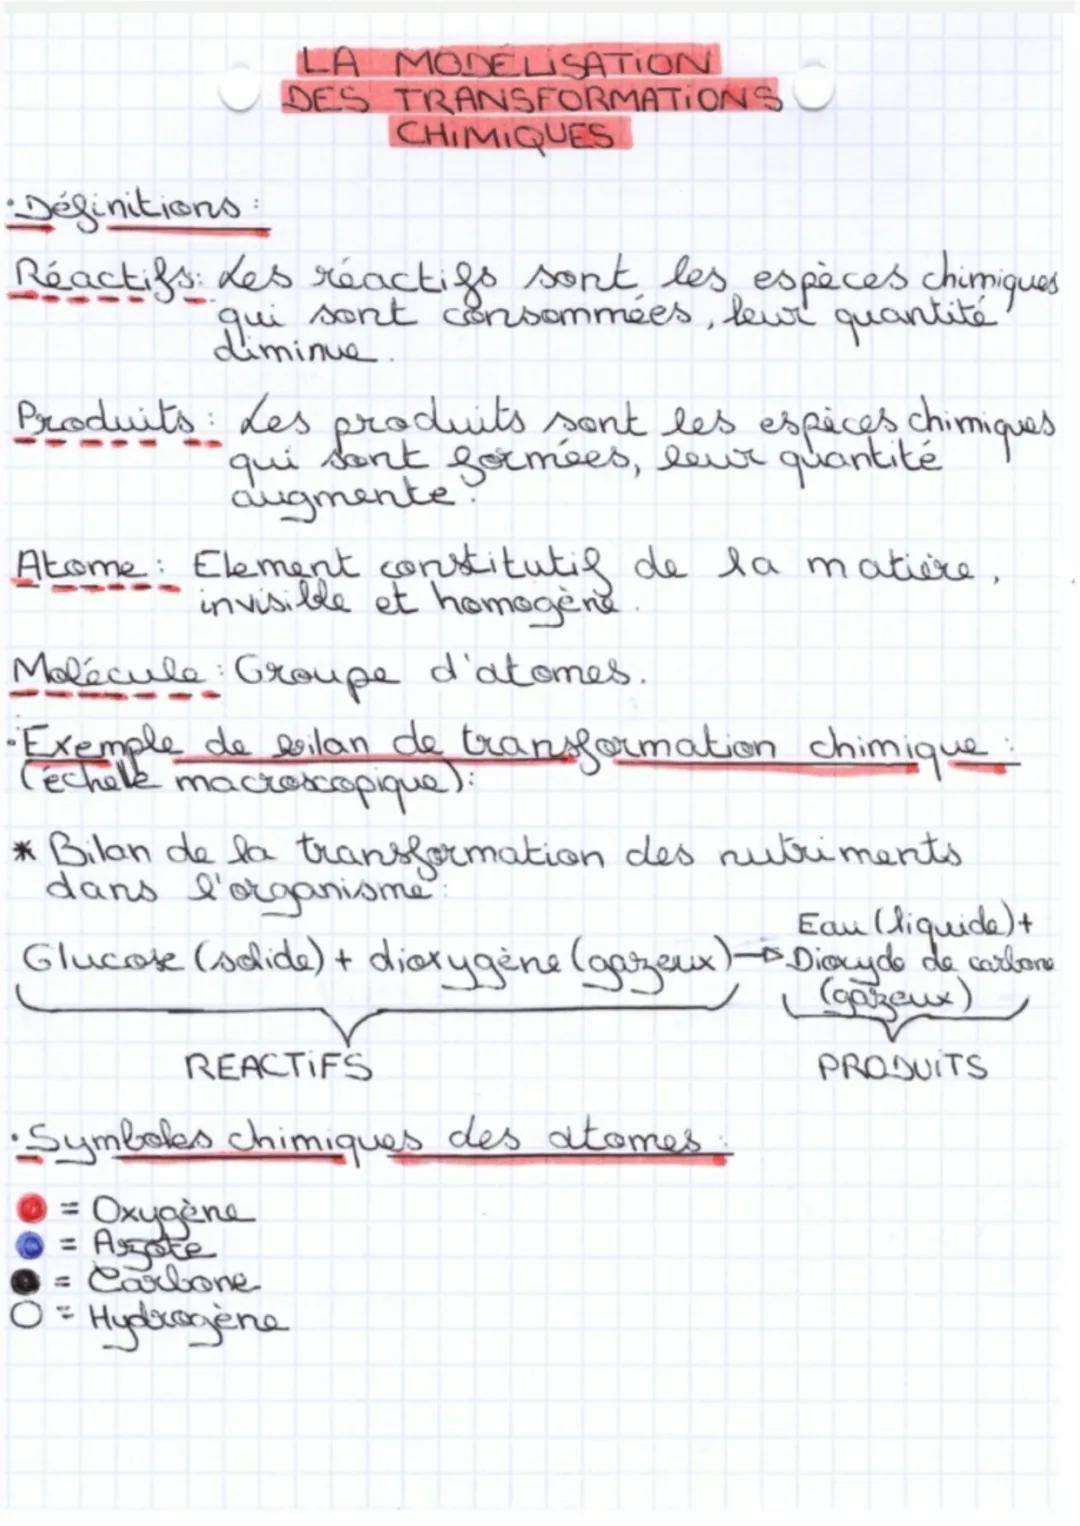 LA MODÉLISATION
DES TRANSFORMATIONS
CHIMIQUES
• Définitions :
Réactifs : Les réactifs sont les espèces chimiques
qui sont consommées, leur quantité
diminue.
Produits : Les produits sont les espèces chimiques
qui sont formées, leur quantité
augmente.
Atome : Element constitutif de la matière,
invisible et homogène.
Molécule : Groupe d'atomes.
• Exemple de bilan de transformation chimique :
(échelle macroscopique) :
* Bilan de la transformation des nutriments
dans l'organisme :
Eau (liquide) +
Glucose (solide) + dioxygène (gazeux) → Dioxyde de carbone
(gazeux)
REACTIFS PRODUITS
• Symboles chimiques des atomes :
= Oxygène
= Azote
= Carbone
= Hydrogène